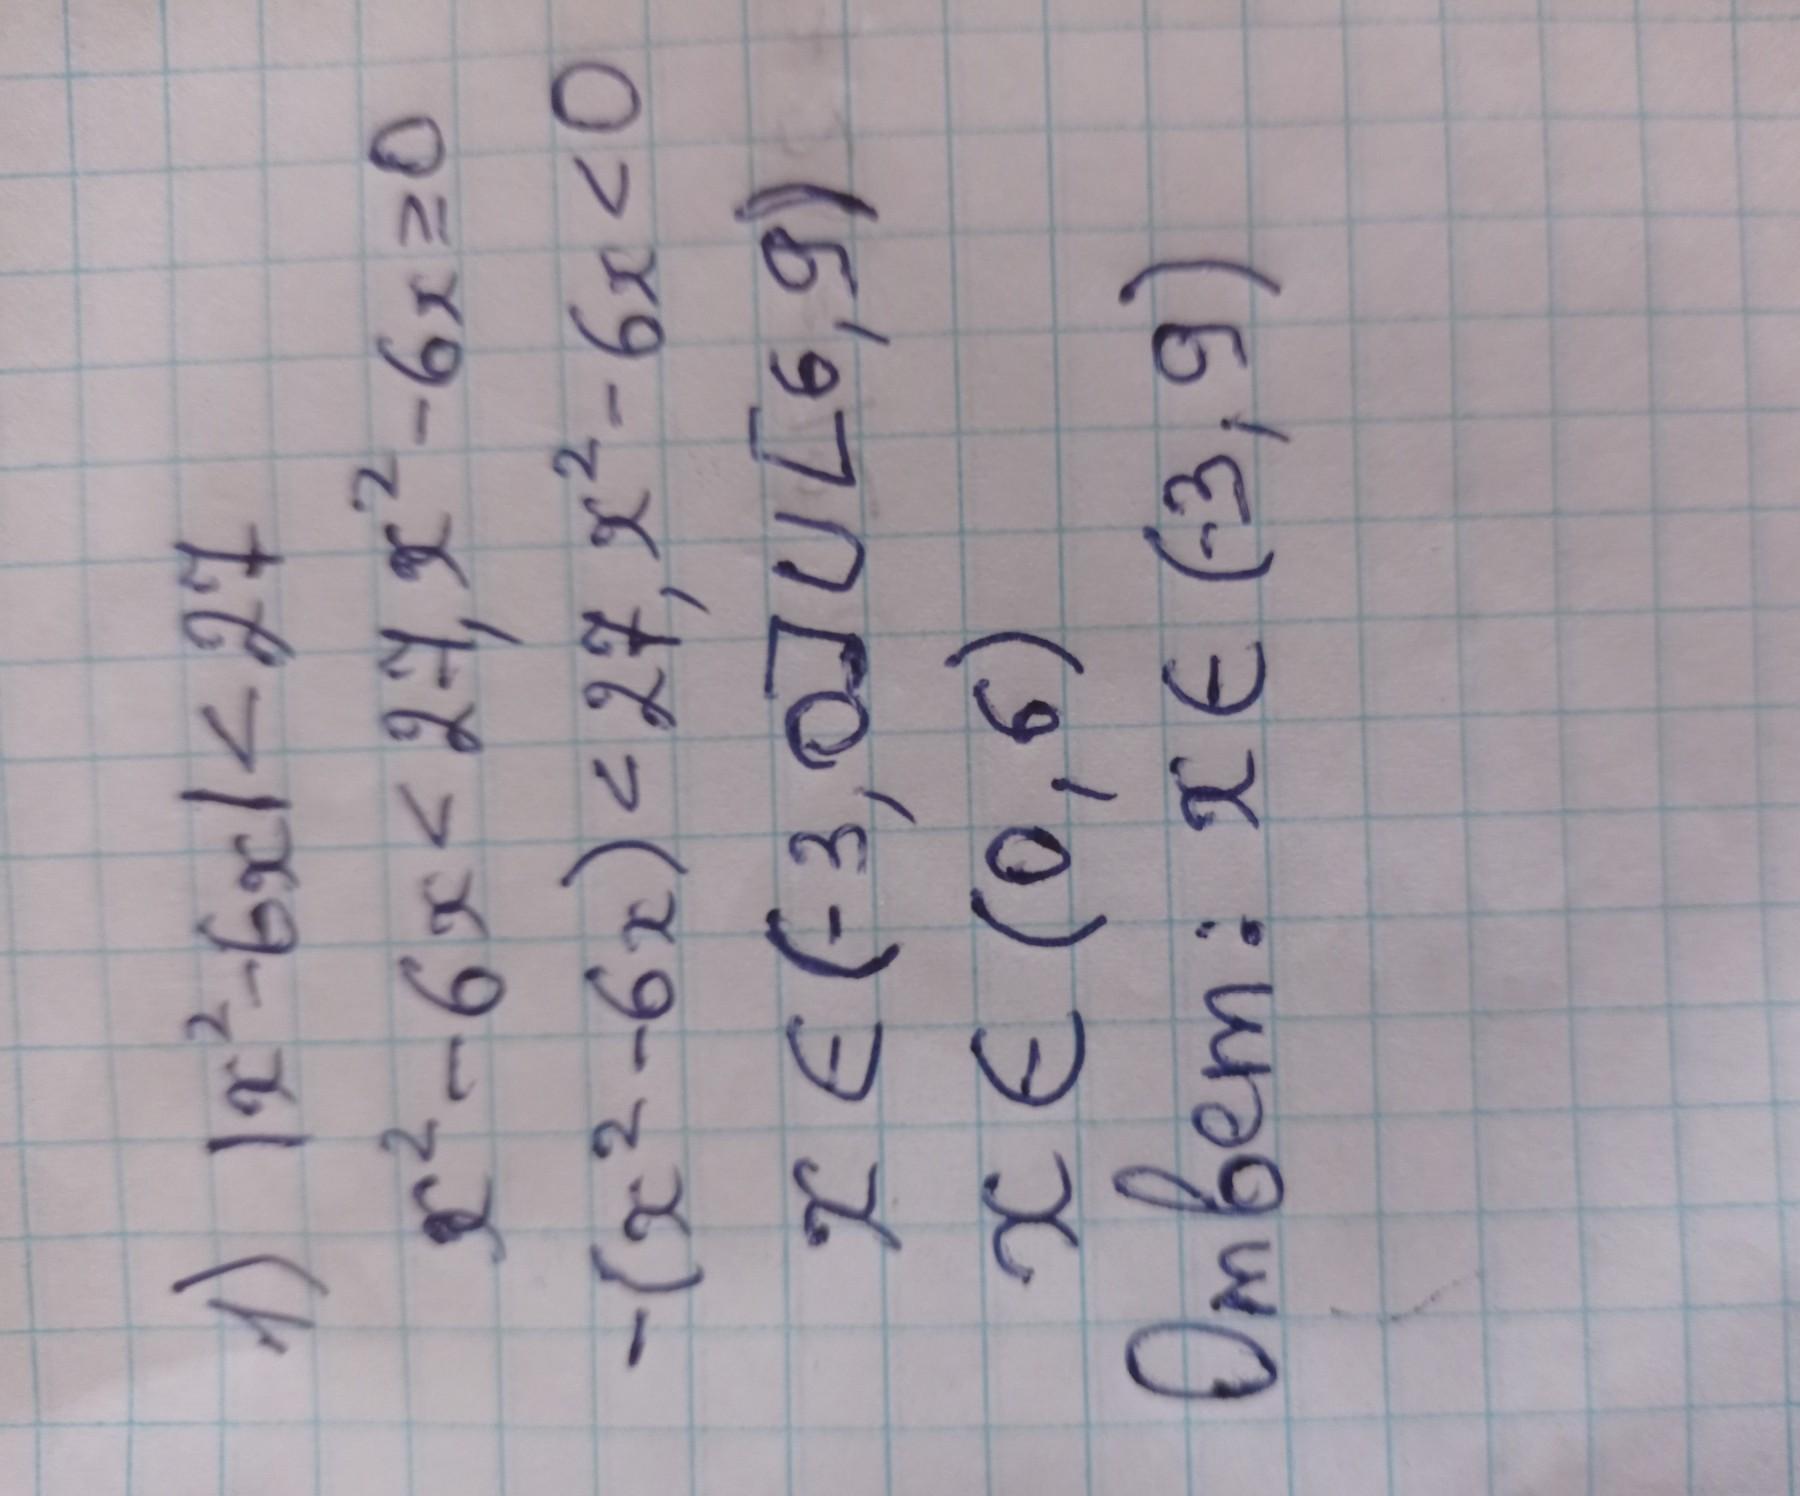 1) |x²-6x|<27
x²-6x<27, x²-6x≥0
-(x²-6x)<27, x²-6x<0
x∈(-3,0]∪[6,9)
x∈(0,6)
Ответ: x∈(-3,9)